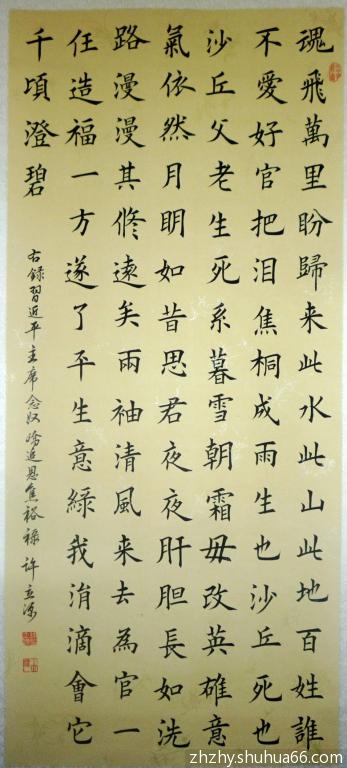 魂飛萬里盼歸来此水此山此地百姓誰
不愛好官把泪焦桐成雨生也沙丘死也
沙丘父老生死系暮雪朝霜毋改英雄意
氣依然月明如昔思君夜夜肝胆長如洗
路漫漫其修遠矣兩袖清風来去為官一
任造福一方遂了平生意緑我涓滴會它
千頃澄碧
右錄習近平主席念奴嬌追思焦裕禄 許立深
zhzhy.shuhua66.com